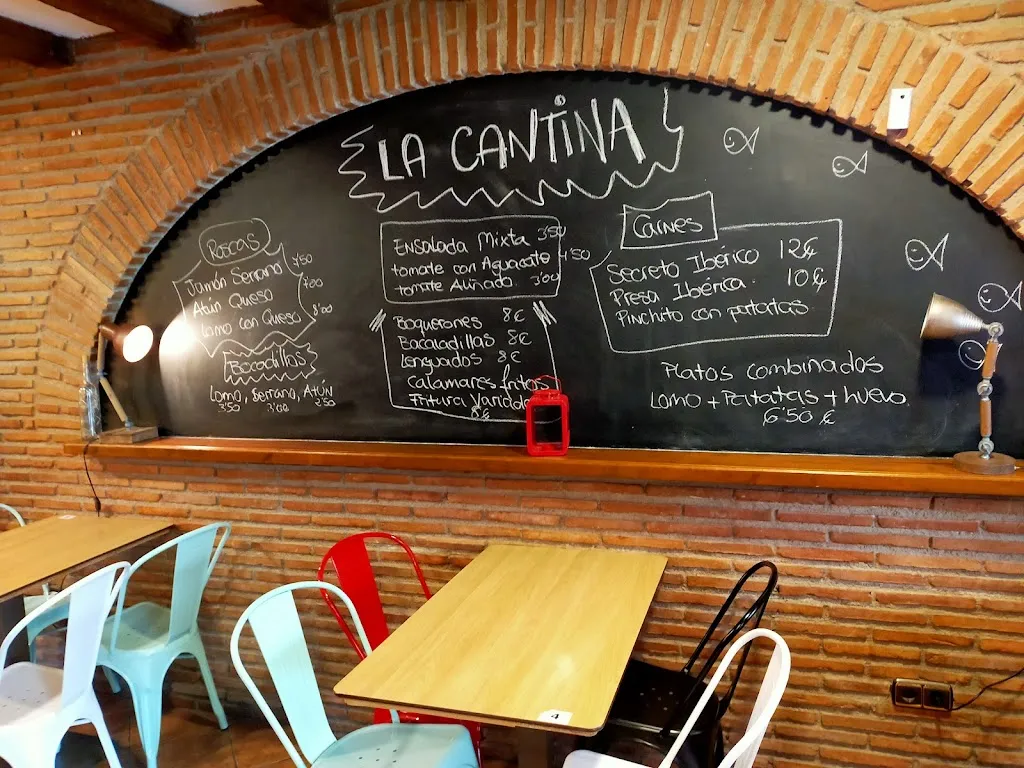 LA CANTINA
Roscas
Jamón Serrano
Atún Queso 7'00
Lomo con Queso 8'00
Bocadillos
Lomo, Serrano, Atún
3'50 3'00 2'50
Ensalada Mixta 3'50
tomate con Aguacate 4'50
tomate Aliñado 3'00
Boquerones 8€
Bacaladillas 8€
Lenguados 8€
Calamares fritos
Fritura Variada
8€
Carnes
Secreto Ibérico 12€
Presa Ibérica. 10€
Pinchito con patatas
Platos Combinados
Lomo + Patatas + huevo.
6'50 €
4